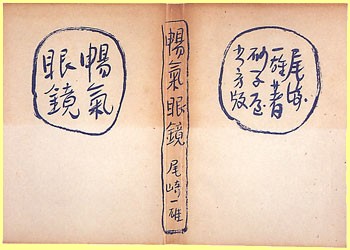 尾崎
一雄著
砂子屋
書房版
暢氣眼鏡 尾崎一雄
暢氣
眼鏡